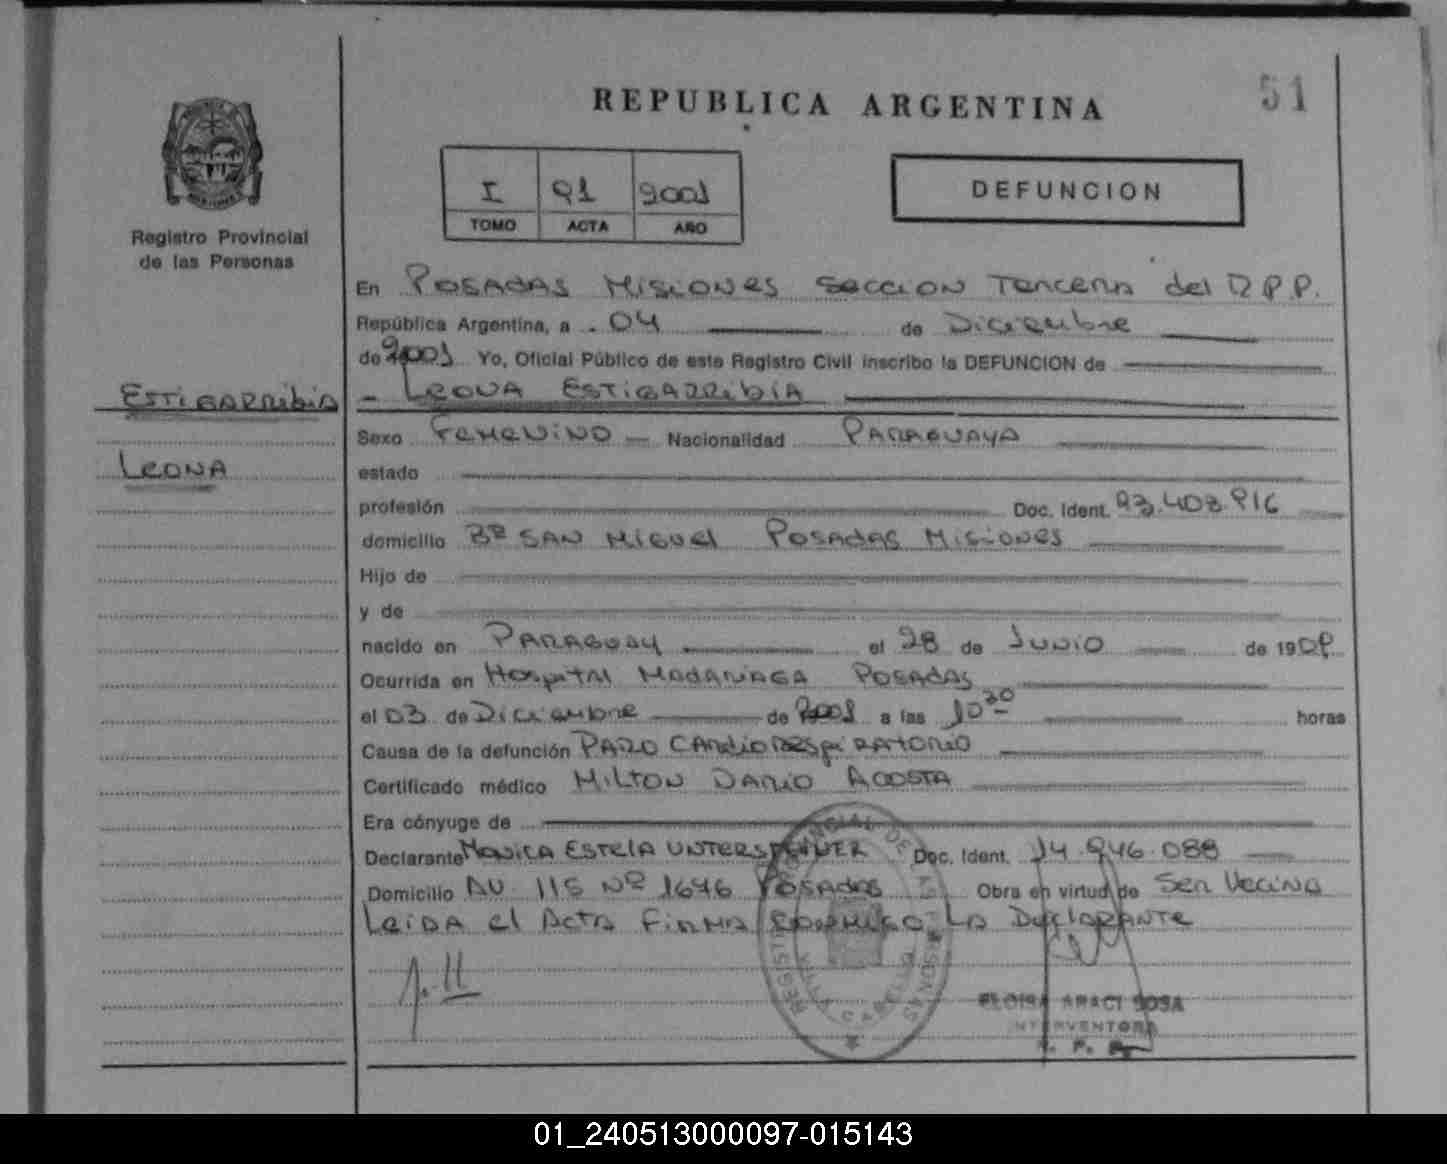 REPUBLICA ARGENTINA
51
I 91 2001
TOMO ACTA AÑO
DEFUNCION
Registro Provincial
de las Personas
En POSADAS MISIONES SECCION TERCERA del R.P.P.
República Argentina, a . 04 de Diciembre
de 2001 Yo, Oficial Público de este Registro Civil inscribo la DEFUNCION de
ESTIGARRIBIA
- LEONA ESTIGARRIBIA
Sexo FEMENINO Nacionalidad PARAGUAYA
LEONA
estado
profesión Doc. Ident. 93.403.916
domicilio Bº SAN MIGUEL POSADAS MISIONES
Hijo de
y de
nacido en PARAGUAY el 28 de JUNIO de 1909
Ocurrida en HOSPITAL MADARIAGA POSADAS
el 03 de Diciembre de 2001 a las 10 30 horas
Causa de la defunción PARO CARDIORESPIRATORIO
Certificado médico MILTON DARIO ACOSTA
Era cónyuge de
Declarante MONICA ESTELA Doc. Ident. 14.946.088
Domicilio AV. 115 Nº 1646 POSADAS Obra en virtud de SER VECINA
LEIDA el ACTA FIRMA CONMIGO LA DECLARANTE
REGISTRO PROVINCIAL DE LAS PERSONAS
VILLA CABELLO
ELOISA ARACI SOSA
INTERVENTORA
01_240513000097-015143